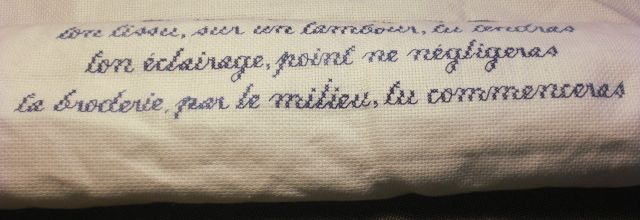 ton tissu, sur un tambour, tu tendras
ton éclairage, point ne négligeras
ta broderie, par le milieu, tu commenceras